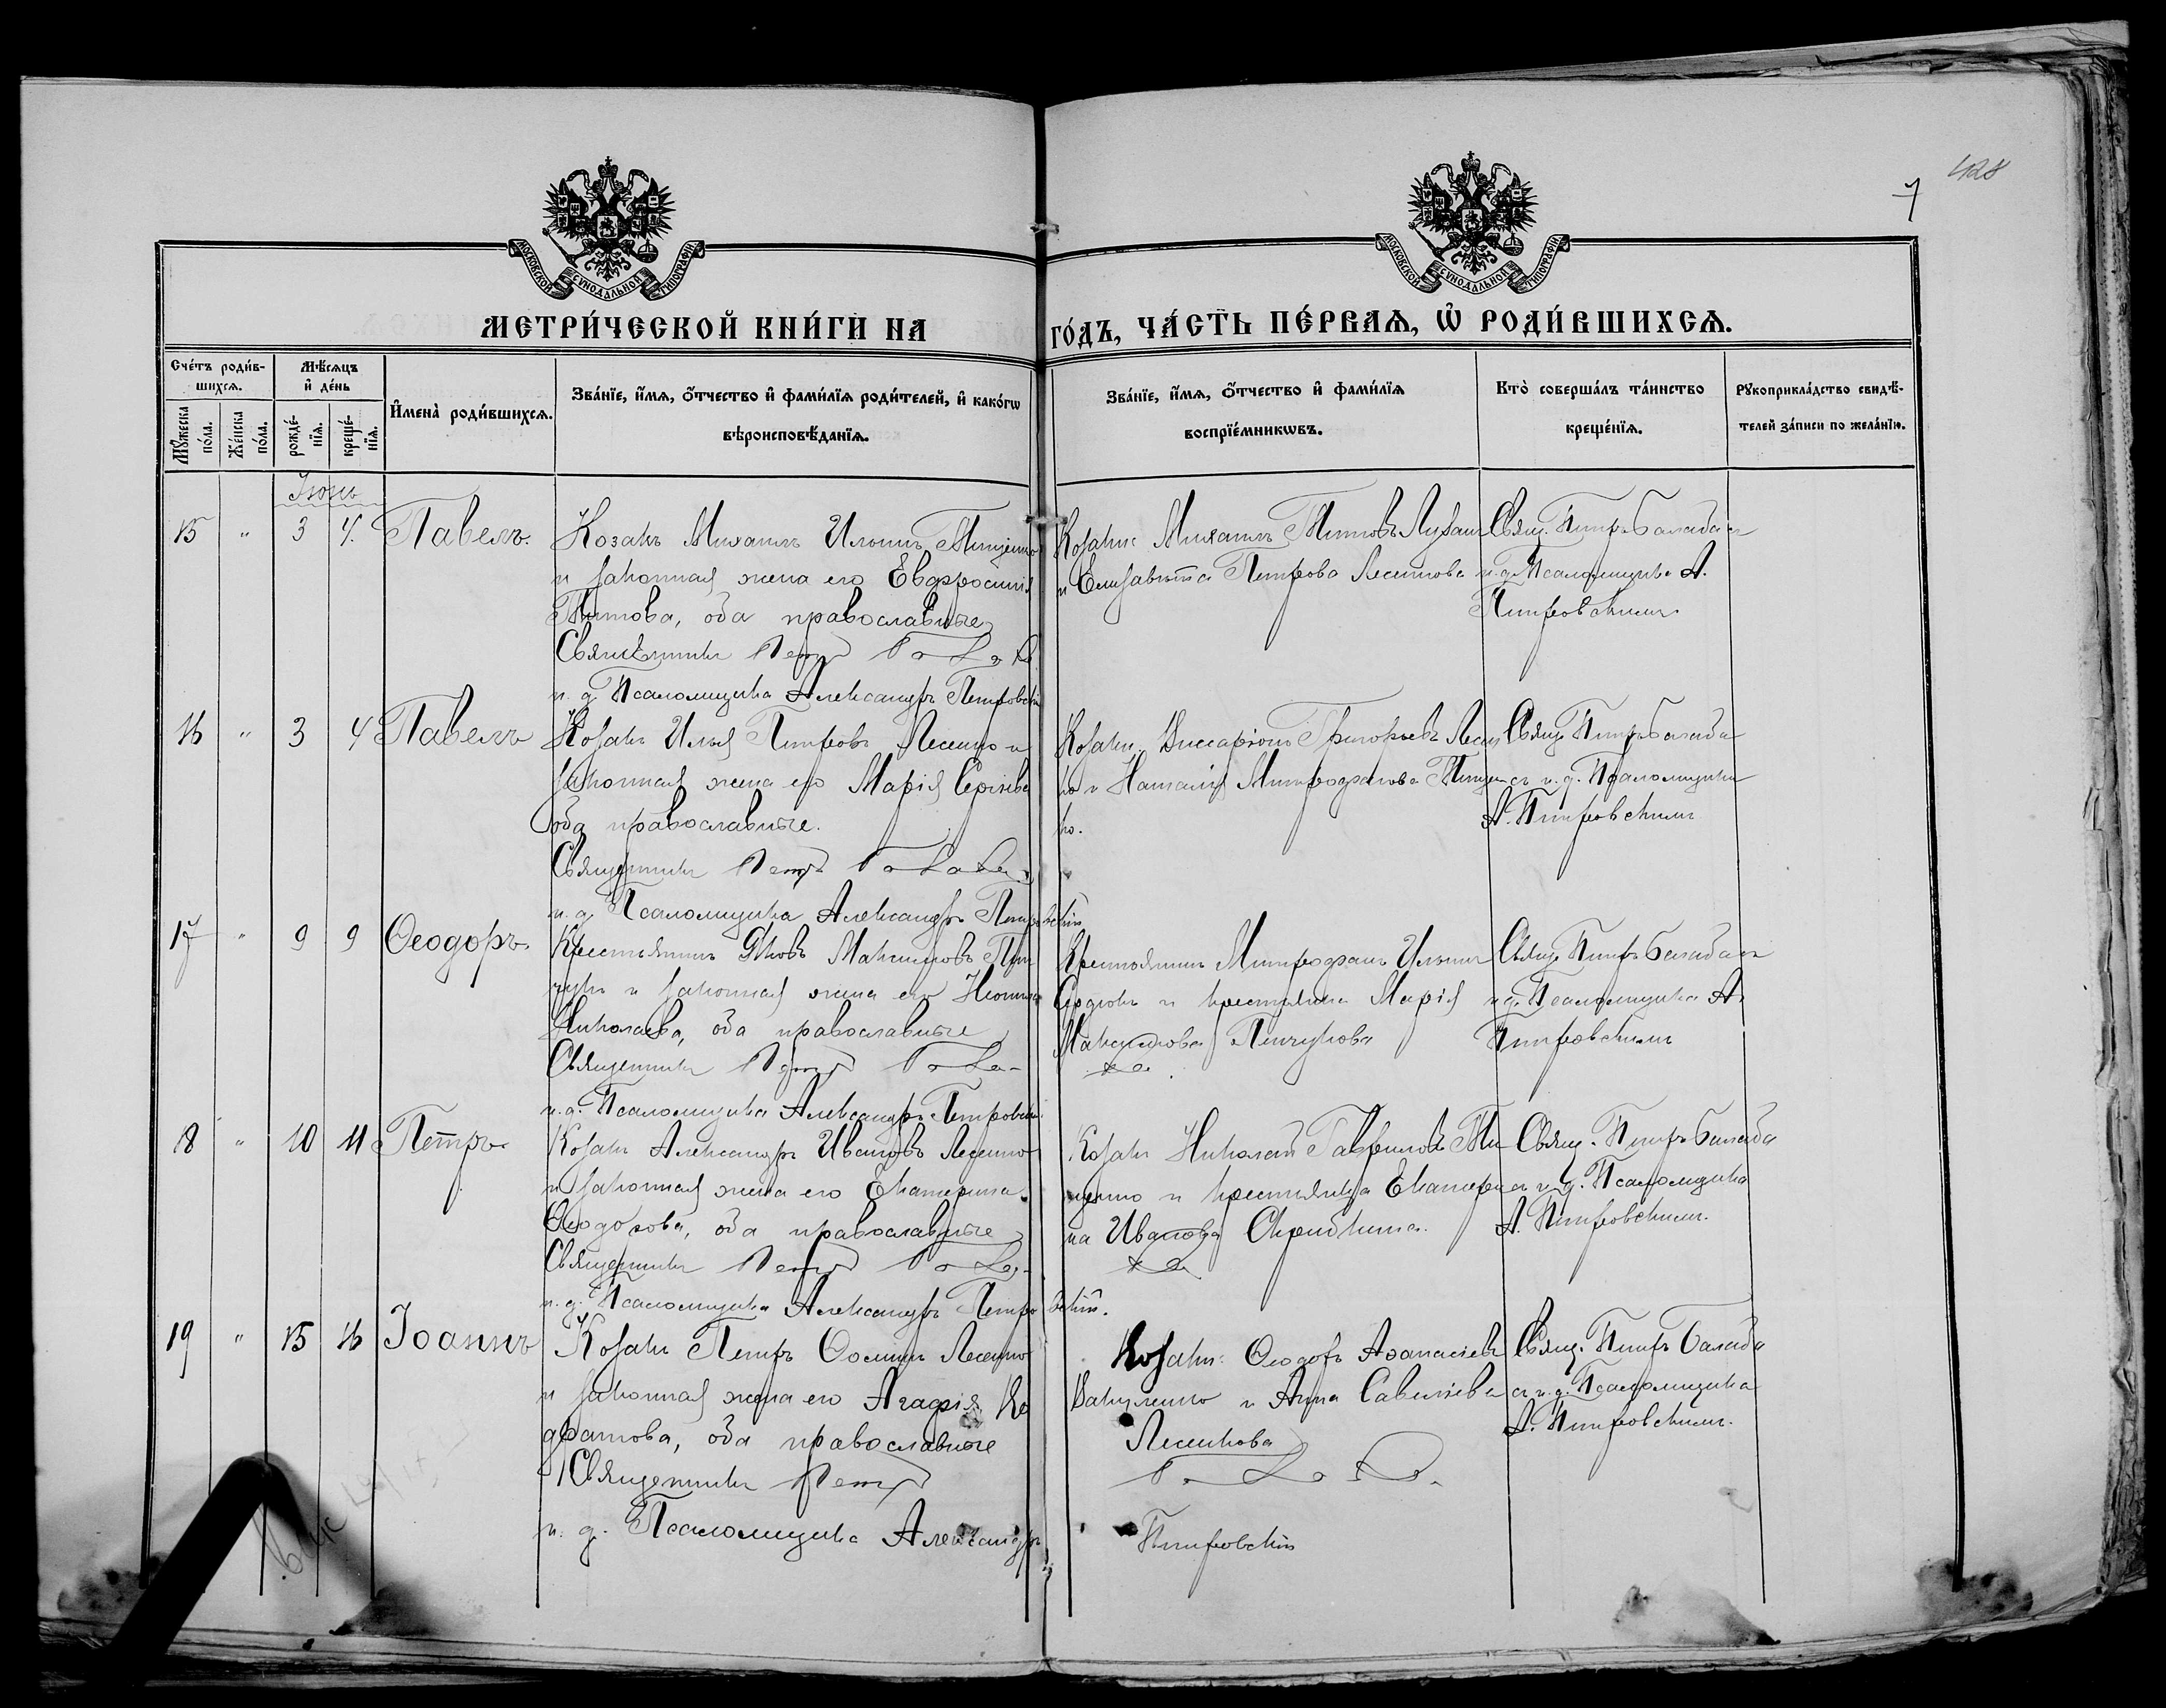 428
7
МОСКОВСКОЙ СѴНОДАЛЬНОЙ ТИПОГРАФІИ
МОСКОВСКОЙ СѴНОДАЛЬНОЙ ТИПОГРАФІИ
МЕТРИ́ЧЕСКОЙ КНИ́ГИ НА
ГО́ДЪ, ЧА́СТЬ ПЕ́РВАѦ, Ѡ҆ РОДИ́ВШИХСѦ.
Сче́тъ роди́в-
шихсѧ.
Мꙋжеска по́ла.
Же́нска по́ла.
Мѣ́сѧцъ
и҆ де́нь
рожде́-
нїѧ.
креще́-
нїѧ.
И҆мена̀ роди́вшихсѧ.
Зва́нїе, и҆́мѧ, ѻ҆́тчество и҆ фами́лїѧ роди́телей, и҆ како́гѡ
вѣроисповѣ́данїѧ.
Зва́нїе, и҆́мѧ, ѻ҆́тчество и҆ фами́лїѧ
воспрїе́мникѡвъ.
Кто̀ соверша́лъ та́инство
креще́нїѧ.
Рꙋкоприкла́дство свидѣ́-
телей за́писи по жела́нїю.
Іюнь
15 " 3 4. Павелъ.
Козакъ Михаилъ Ильинъ Тищенко
и законная жена его Евфросинія
Титова, оба православные
Священникъ Петръ
и. д. Псаломщика Александръ Петровскій
Козакъ Михаилъ Титовъ
и Елизавета Петрова Лесенкова
Свящ. Петръ Балабан
и. д. Псаломщика А.
Петровскимъ
16 " 3 4 Павелъ
Козакъ Илья Петровъ Лесенко и
законная жена его Марія Сергіева
оба православные.
Священникъ Петръ
и. д. Псаломщика Александръ Петровскій
Козакъ Виссаріонъ Григорьевъ Лесен
ко и Наталія Митрофанова Тищен
ко.
Свящ. Петръ Балаба
съ и. д. Псаломщика
А. Петровскимъ
17 " 9 9 Ѳеодоръ
Крестьянинъ Яковъ Максимовъ Пин
чукъ и законная жена его
Николаева, оба православные
Священникъ Петръ
и. д. Псаломщика Александръ Петровскій
Крестьянинъ Митрофанъ Ильинъ
и крестьянка Марія
Максимова Пинчукова
Свящ. Петръ Балабан
и. д. Псаломщика А.
Петровскимъ
18 " 10 11 Петръ
Козакъ Александръ Ивановъ Лесенко
и законная жена его Екатерина
Ѳеодорова, оба православные
Священникъ Петръ
и. д. Псаломщика Александръ Петровскій.
Козакъ Николай Гавриловъ Ти
щенко и крестьянка Екатери
на Иванова
Свящ. Петръ Балаба
съ и. д. Псаломщика
А. Петровскимъ.
19 " 15 16 Іоаннъ
Козакъ Петръ Ѳоминъ Лесенко
и законная жена его Агафія Ко
дратова, оба православные
Священникъ Петръ
и. д. Псаломщика Александръ
Козакъ Ѳеодоръ Аѳанасіевъ
Вакуленко и Анна Савеліева
Лесенкова
Петровскій
Свящ. Петръ Балаба
съ и. д. Псаломщика
А. Петровскимъ.